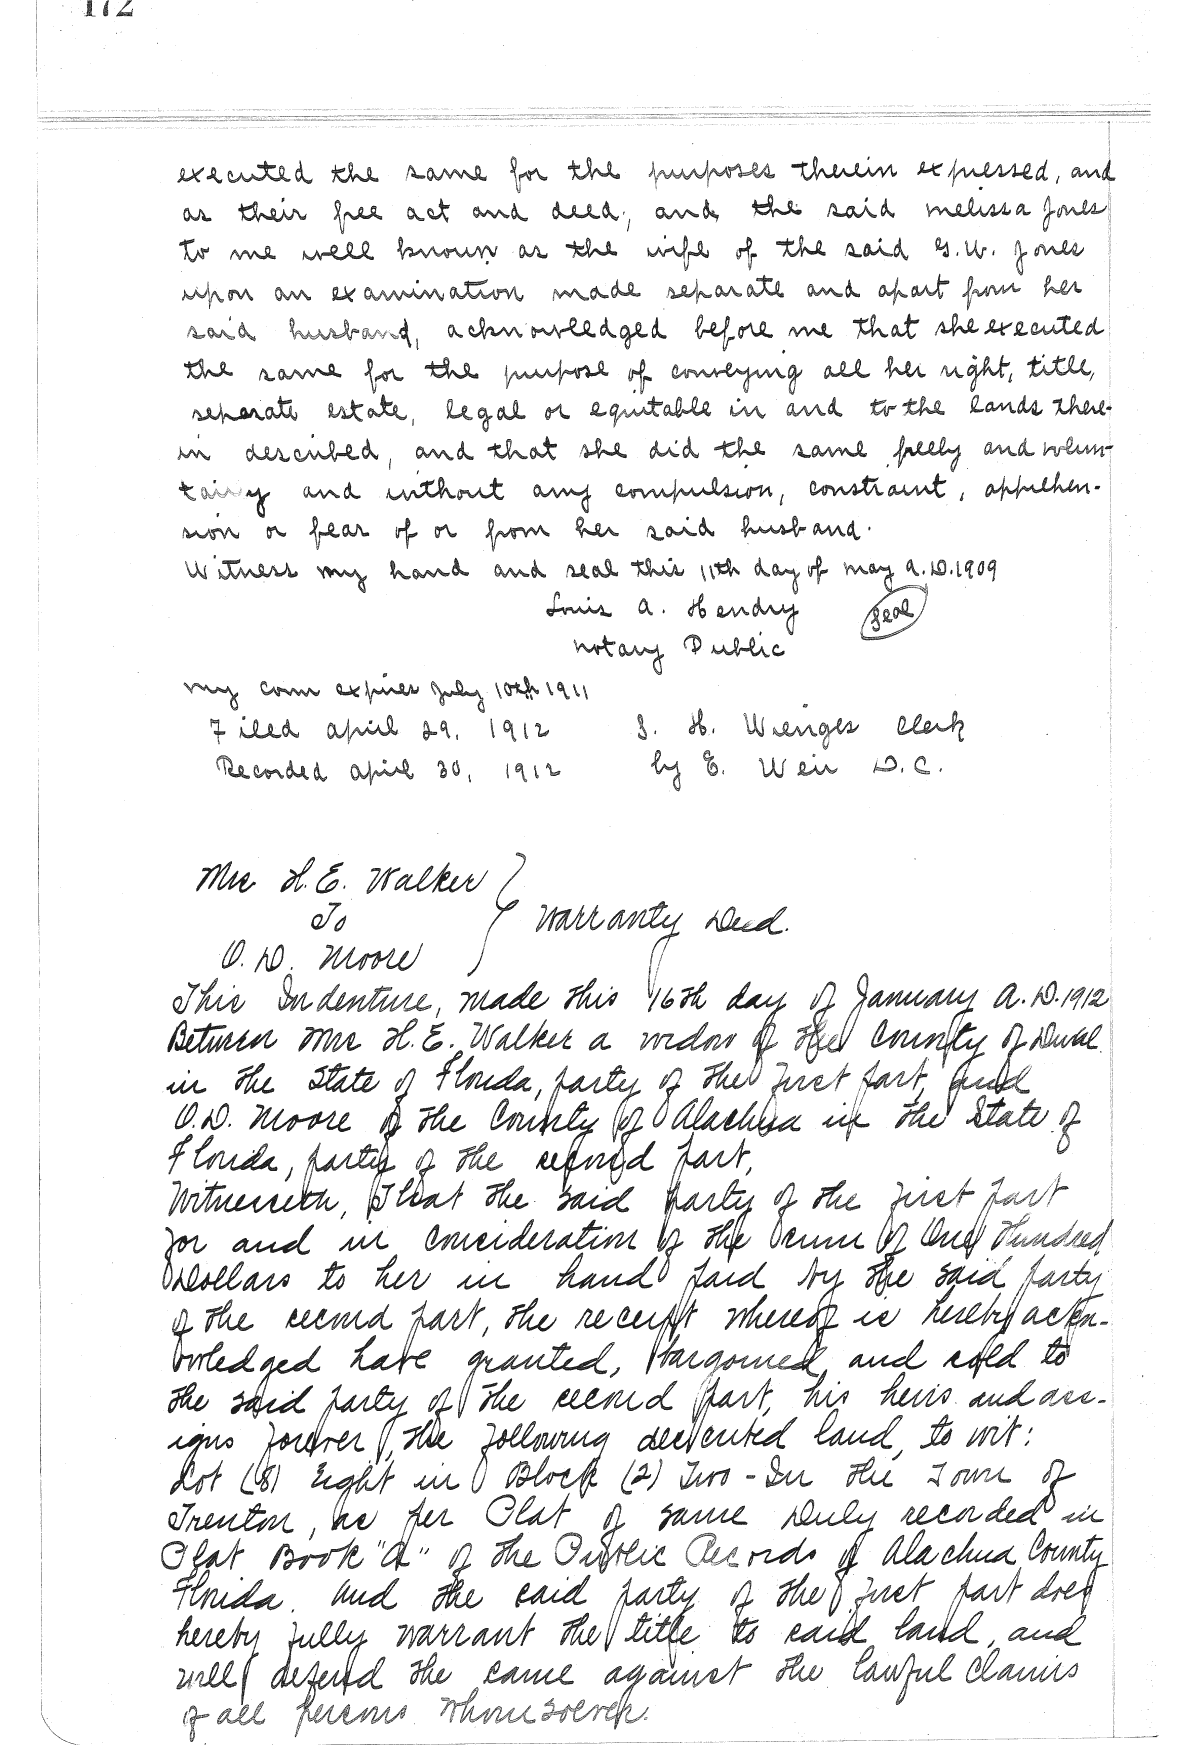 172
executed the same for the purposes therein expressed, and
as their free act and deed; and, the said Melissa Jones
to me well known as the wife of the said G.W. Jones
upon an examination made separate and apart from her
said husband, acknowledged before me that she executed
the same for the purpose of conveying all her right, title,
separate estate, legal or equitable in and to the lands there-
in described, and that she did the same freely and volun-
tairy and without any compulsion, constraint, apprehen-
sion or fear of or from her said husband.
Witness my hand and seal this 11th day of May A.D. 1909
Louis A. Hendry Seal
Notary Public
My com expires July 10th 1911
Filed April 29, 1912 S. H. Wienges Clerk
Recorded April 30, 1912 by E. Weir D.C.
Mrs H.E. Walker
To Warranty Deed.
O.D. Moore
This Indenture, made this 16th day of January A.D. 1912
Between Mrs H.E. Walker a widow of the County of Duval
in the State of Florida, party of the first part, and
O.D. Moore of the County of Alachua in the State of
Florida, party of the second part,
Witnesseth, That the said party of the first part
for and in consideration of the sum of One Hundred
Dollars to her in hand paid by the said party
of the second part, the receipt whereof is hereby ackn-
owledged have granted, bargoined, and sold to
the said party of the second part, his heirs and ass-
igns forever, the following described land, to wit:
Lot (8) Eight in Block (2) Two - In the Town of
Trenton, as per Plat of same Duly recorded in
Plat Book "A" of the Public Records of Alachua County
Florida. And the said party of the first part does
hereby fully warrant the title to said land, and
will defend the same against the lawful claims
of all persons whomsoever.